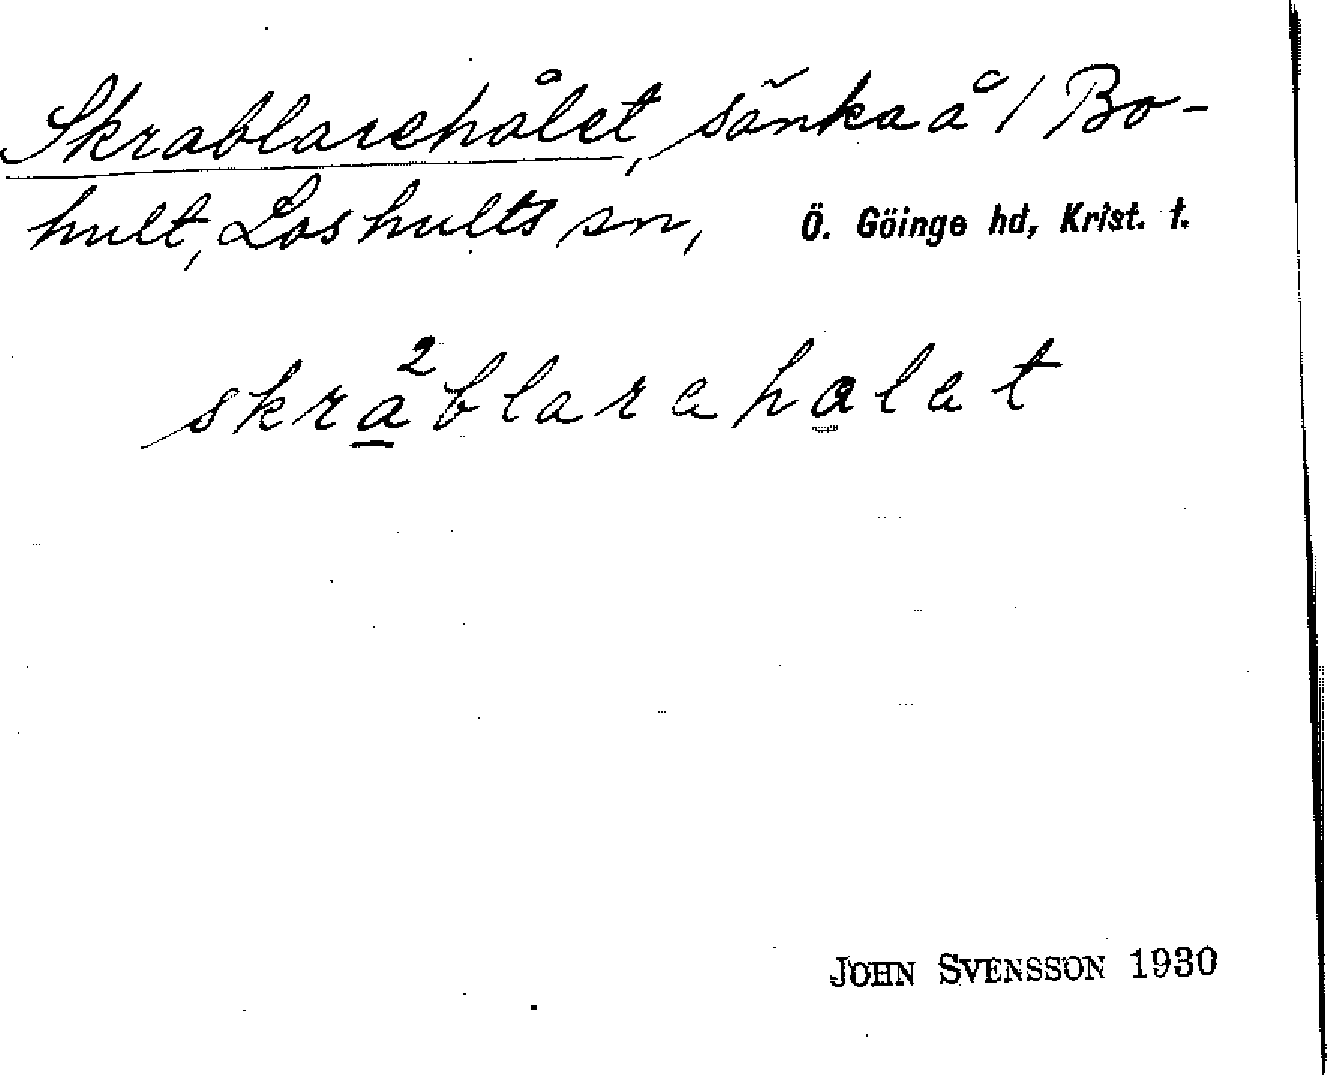 Skrablarehålet, sänka å / Bo-
hult, Loshults sn, Ö. Göinge hd, Krist. t.
skra²blarehalet
JOHN SVENSSON 1930